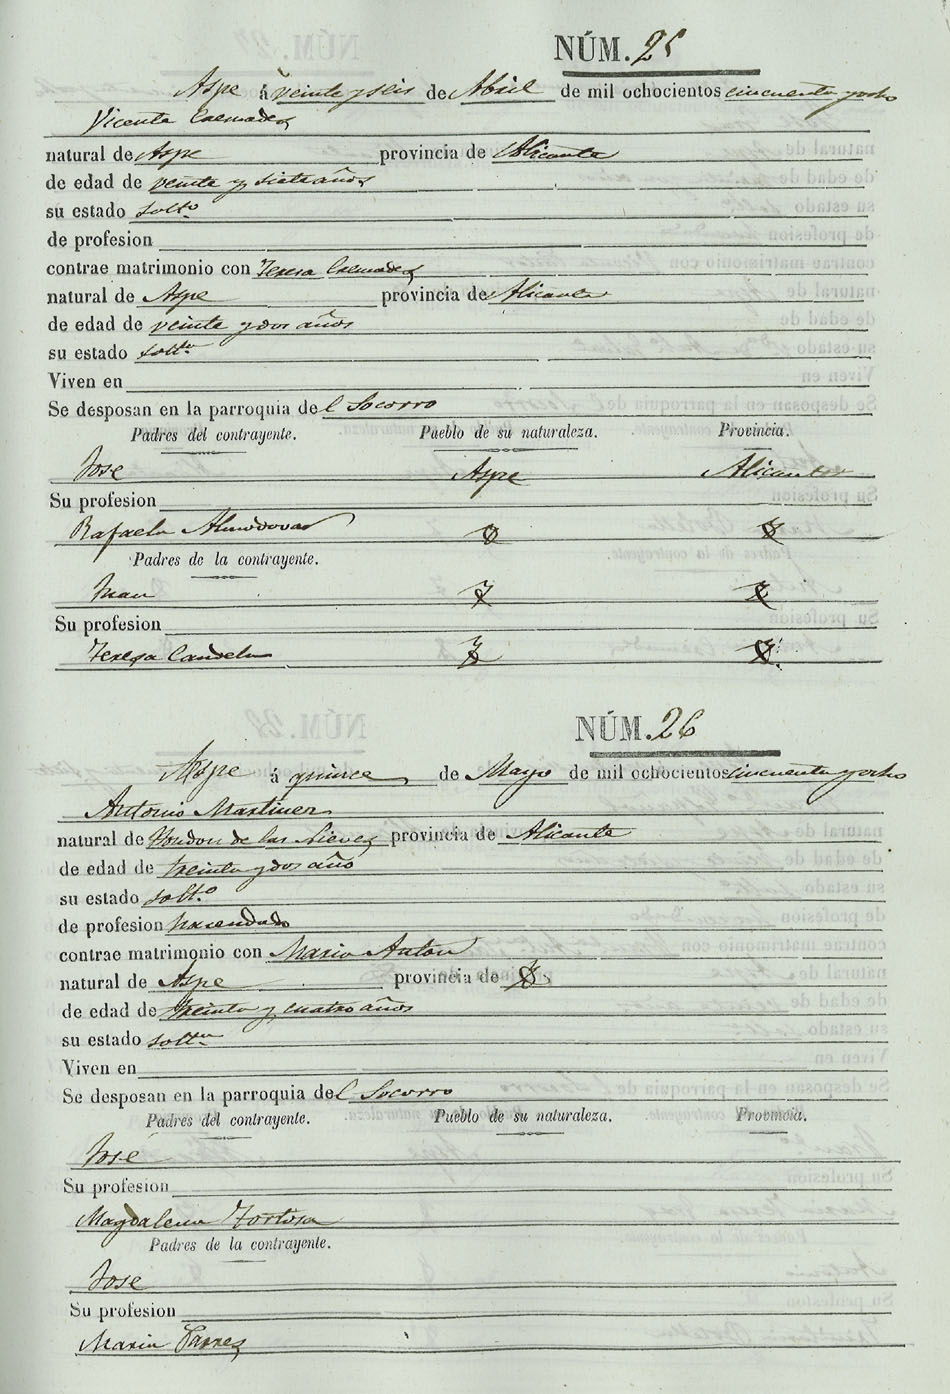 NÚM. 25
Aspe á veinte y seis de Abril de mil ochocientos cincuenta y ocho
Vicente Cremades
natural de Aspe provincia de Alicante
de edad de veinte y siete años
su estado soltº
de profesion
contrae matrimonio con Teresa Cremades
natural de Aspe provincia de Alicante
de edad de veinte y dos años
su estado soltª
Viven en
Se desposan en la parroquia del Socorro
Padres del contrayente. Pueblo de su naturaleza. Provincia.
Jose Aspe Alicante
Su profesion
Rafaela Almodovar
Padres de la contrayente.
Juan
Su profesion
Teresa Candela
NÚM. 26
Aspe á quince de Mayo de mil ochocientos cincuenta y ocho
Antonio Martinez
natural de Hondon de las Nieves provincia de Alicante
de edad de treinta y dos año
su estado soltº
de profesion hacendado
contrae matrimonio con Maria Anton
natural de Aspe provincia de
de edad de treinta y cuatro años
su estado soltª
Viven en
Se desposan en la parroquia del Socorro
Padres del contrayente. Pueblo de su naturaleza. Provincia.
José
Su profesion
Magdalena Tortosa
Padres de la contrayente.
Jose
Su profesion
Maria Parres